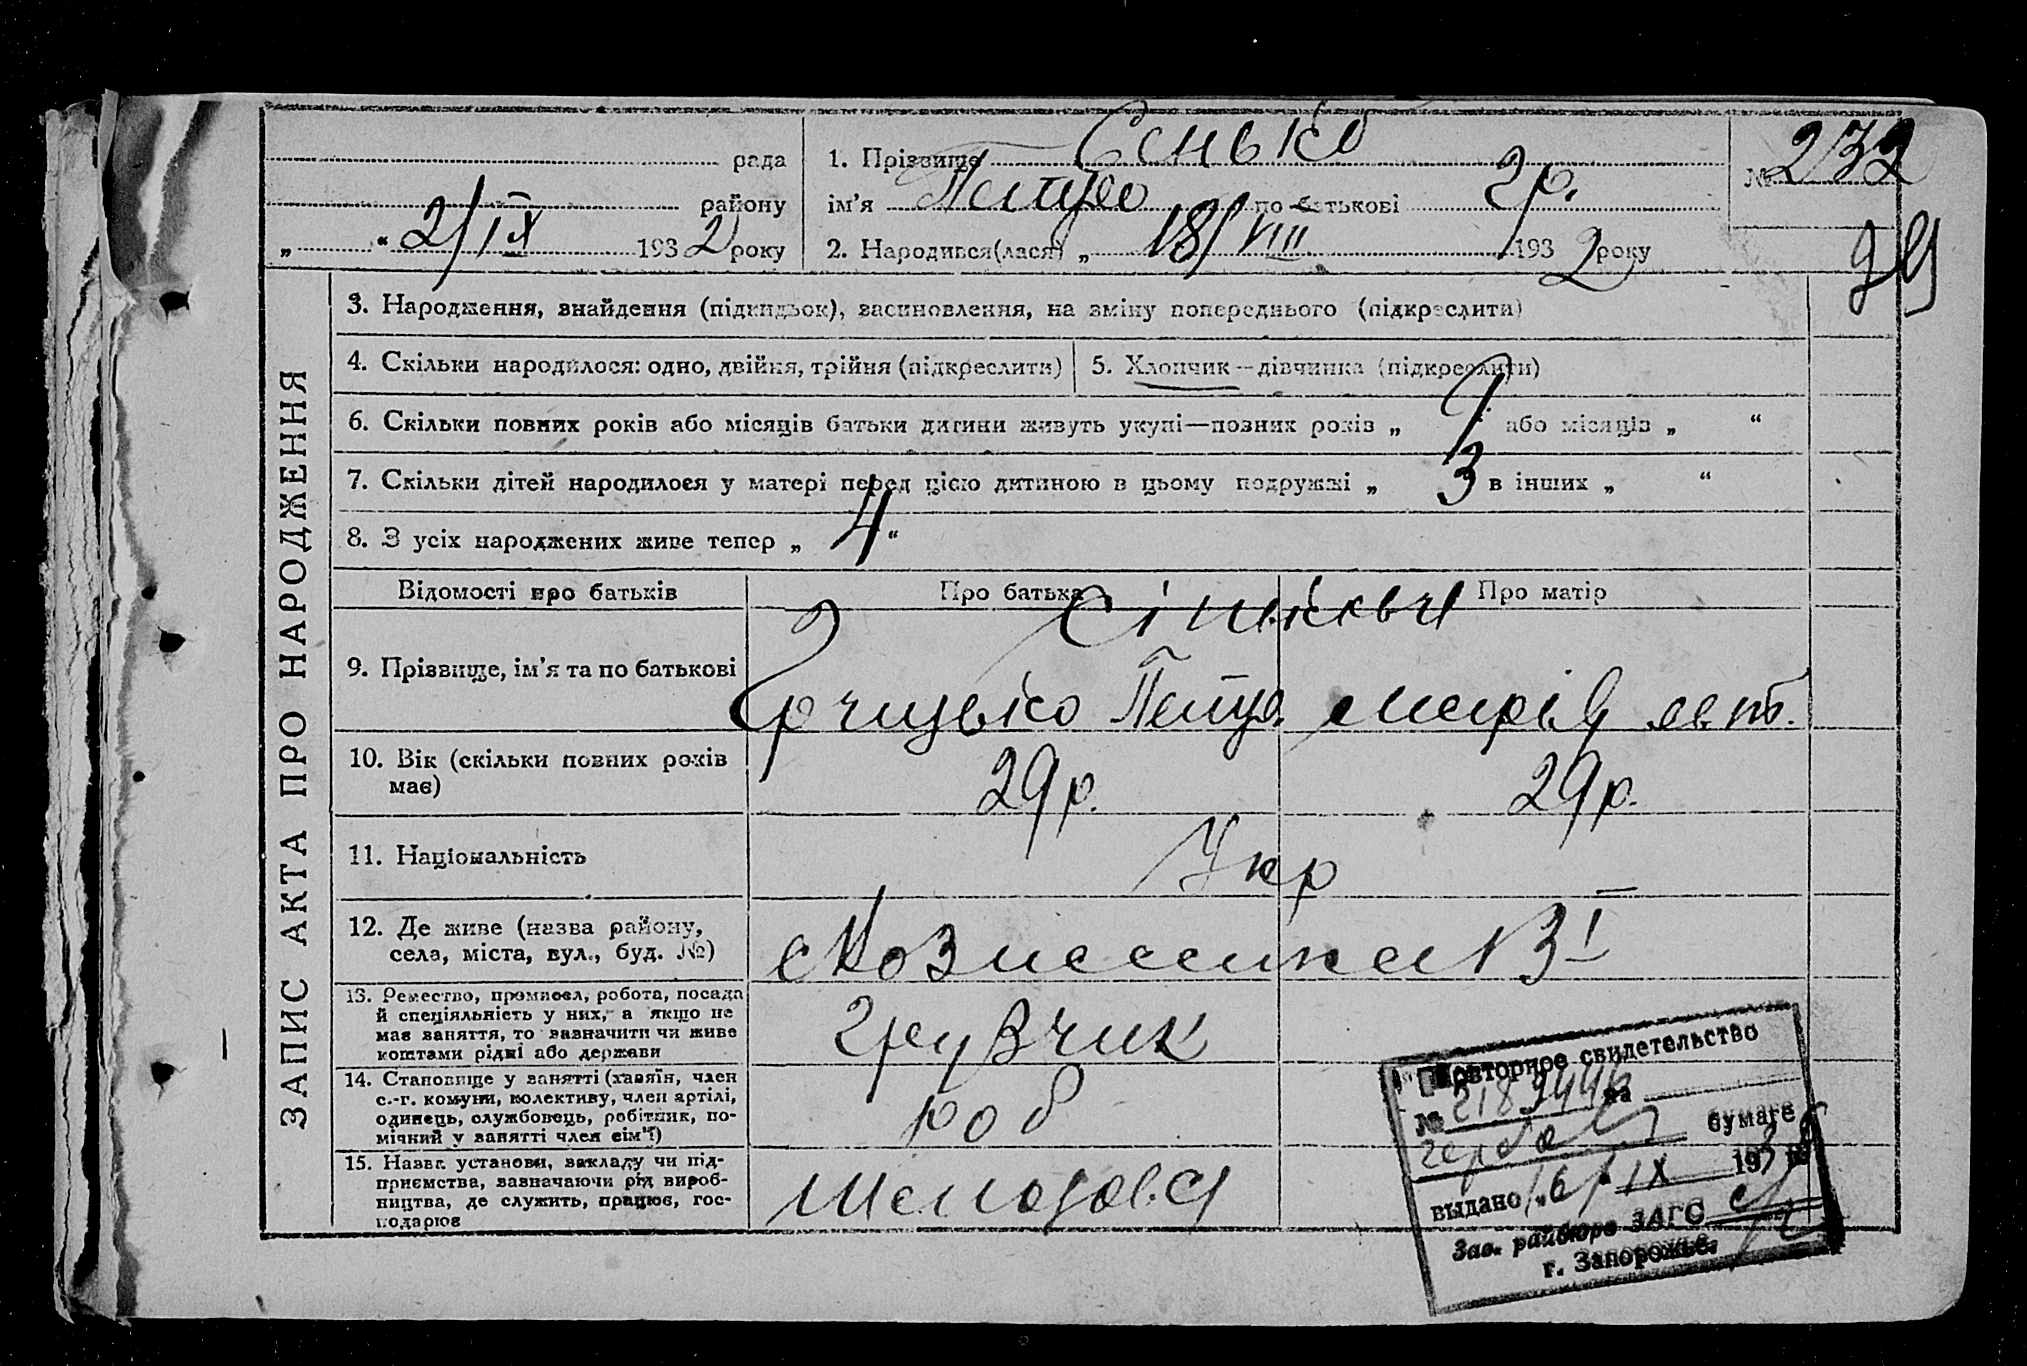 рада
1. Прізвище Сенько
№ 232
району
ім'я Петро по батькові Гр.
„ “ 2/IX 1932 року
2. Народився(лася) „ 18/VIII 1932 року
ЗАПИС АКТА ПРО НАРОДЖЕННЯ
3. Народження, знайдення (підкидьок), засиновлення, на зміну попереднього (підкреслити)
4. Скільки народилося: одно, двійня, трійня (підкреслити)
5. Хлопчик—дівчинка (підкреслити)
6. Скільки повних років або місяців батьки дитини живуть укупі—повних років „ або місяців „ “
7. Скільки дітей народилося у матері перед цією дитиною в цьому подружжі „ 3 в інших „ “
8. З усіх народжених живе тепер „ 4 “
Відомості про батьків
Про батька
Про матір
Сінькови
9. Прізвище, ім'я та по батькові
Грицько Петр. Марія
10. Вік (скільки повних років має)
29 р.
29 р.
11. Національність
Укр
12. Де живе (назва району, села, міста, вул., буд. №)
Вознесенка
13. Ремество, промисел, робота, посада й спеціяльність у них, а якщо не має заняття, то зазначити чи живе коштами рідні або держави
грузчик
14. Становище у занятті (хазяїн, член с.-г. комуни, колективу, член артілі, одинець, службовець, робітник, помічний у занятті член сім'ї)
роб
15. Назва установи, закладу чи підприємства, зазначаючи рід виробництва, де служить, працює, господарює
Повторное свидетельство
№ на
гербовой бумаге
выдано „6“ IX 193
Зав. райбюро ЗАГС
г. Запорожье.